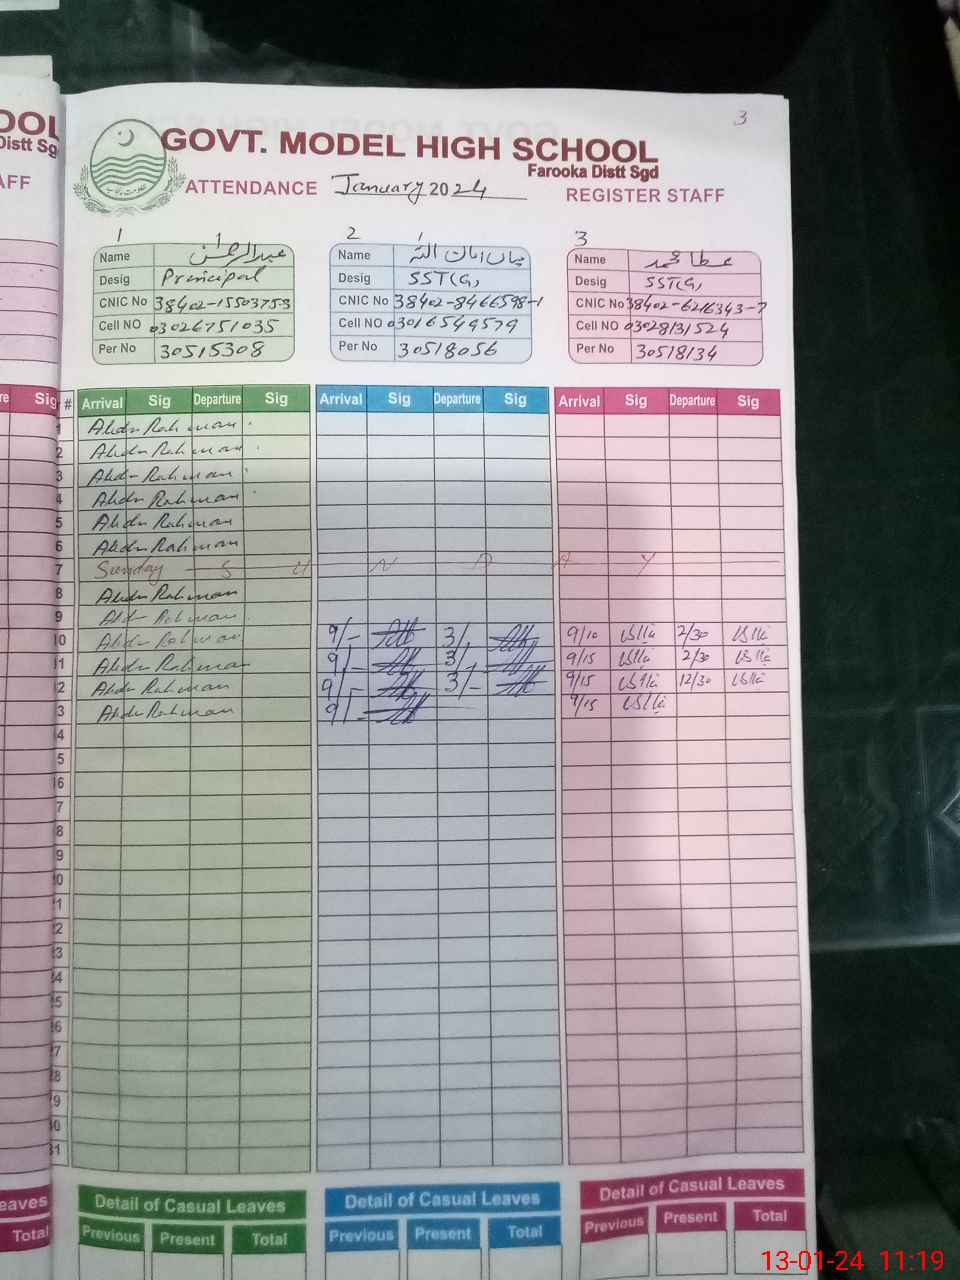 3
OOL
GOVT. MODEL HIGH SCHOOL
Distt Sg
Farooka Distt Sgd
AFF
ATTENDANCE January 2024 REGISTER STAFF
1 2 3
Name عبدالرحمن Name Name عطا محمد
Desig Principal Desig SST(G) Desig SST(G)
CNIC No 38402-1550375-3 CNIC No 38402-8466598-1 CNIC No 38402-6216343-7
Cell NO 03026751035 Cell NO 03016549579 Cell NO 03028131524
Per No 30515308 Per No 30518056 Per No 30518134
re Sig # Arrival Sig Departure Sig Arrival Sig Departure Sig Arrival Sig Departure Sig
1 Abdu Rahman
2 Abdu Rahman
3 Abdu Rahman
4 Abdu Rahman
5 Abdu Rahman
6 Abdu Rahman
7 Sunday S U N D A Y
8 Abdu Rahman
9 Abdu Rahman
10 Abdu Rahman 9/- 3/- 9/10 2/30
11 Abdu Rahman 9/- 3/- 9/15 2/30
2 Abdu Rahman 9/- 3/- 9/15 12/30
3 Abdu Rahman 9/- 9/15
4
5
6
7
8
9
20
21
22
23
24
25
26
27
28
29
30
31
eaves Detail of Casual Leaves Detail of Casual Leaves Detail of Casual Leaves
Total Previous Present Total Previous Present Total Previous Present Total
13-01-24 11:19